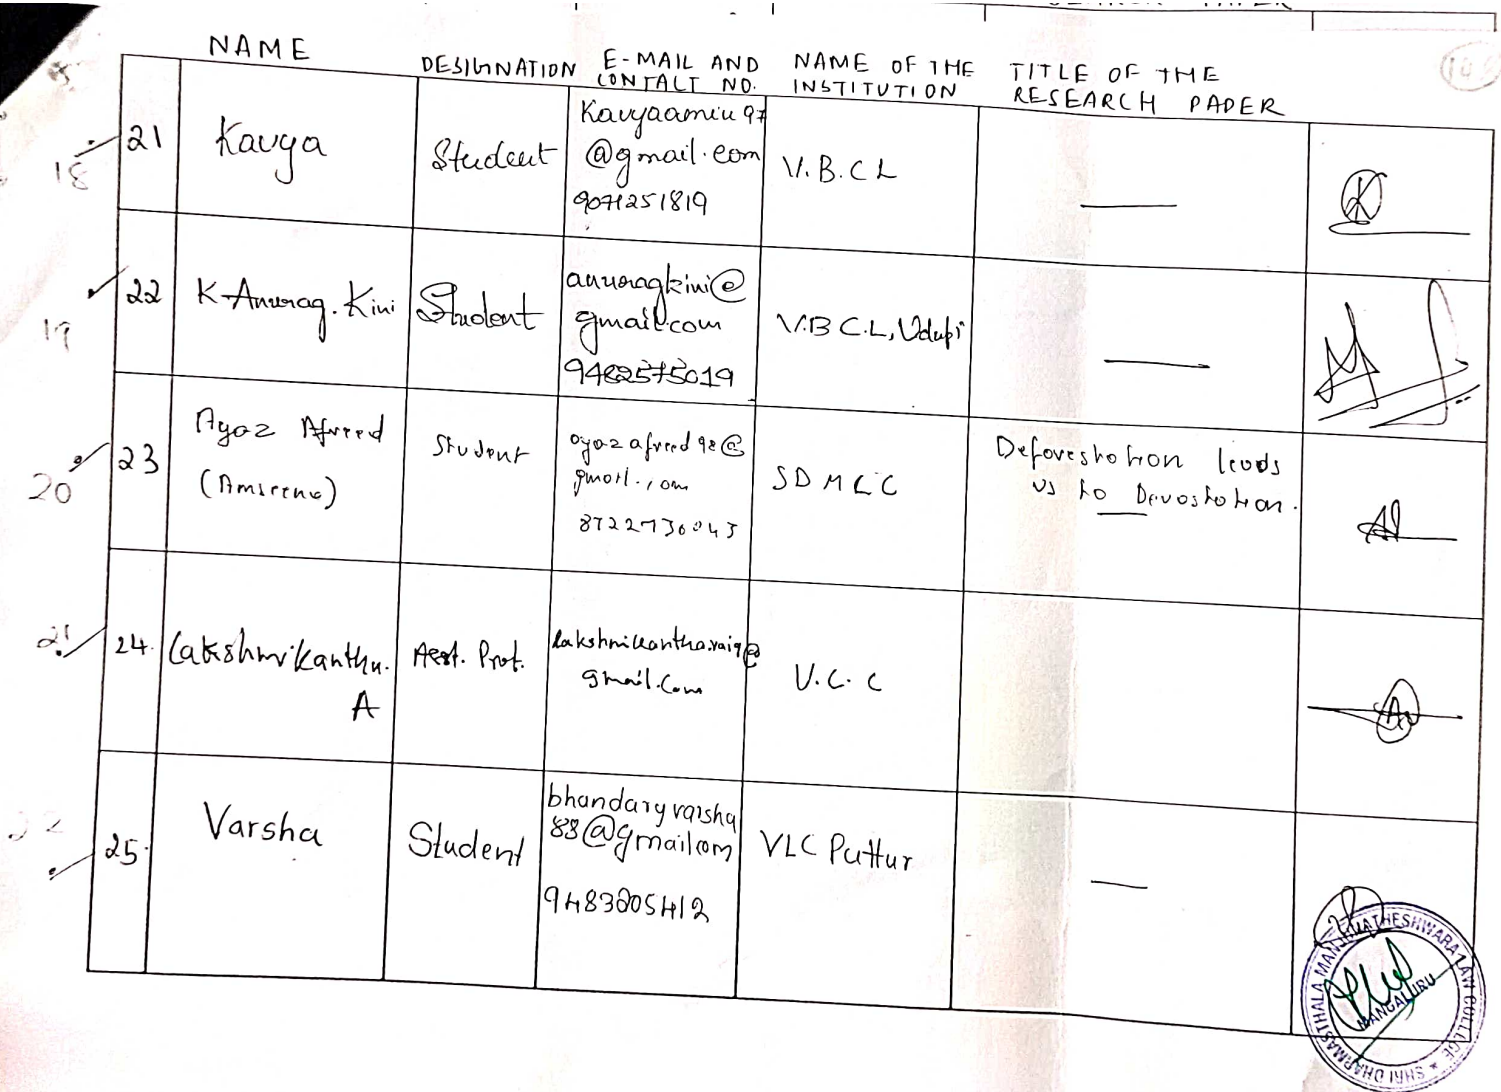 NAME
DESIGNATION
E-MAIL AND
CONTACT NO.
NAME OF THE
INSTITUTION
TITLE OF THE
RESEARCH PAPER
18
21
Kavya
Student
Kavyaamin97
@gmail.com
9071251819
V.B.C L
19
22
K Anurag. Kini
Student
anuragkini@
gmail.com
9482575019
V.B C.L, Udupi
20
23
Ayaz Afreed
(Amseena)
Student
ayazafreed98@
gmail.com
8722730043
SDMLC
Deforestation leads
us to Devastation.
21
24.
Lakshmikantha.
A
Asst. Prof.
lakshmikantha.rai9@
gmail.com
V.C.C
22
25.
Varsha
Student
bhandaryvarsha
88@gmailcom
9483205412
VLC Puttur
SHRI DHARMASTHALA MANJUNATHESHWARA LAW COLLEGE ★
MANGALURU